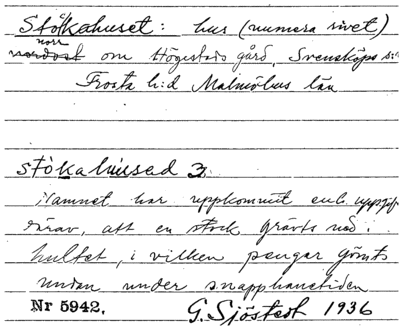 Stökahuset: hus (numera rivet)
norr
nordost om Högestads gård, Svensköps s:n
Frosta h:d Malmöhus län
stökahused 3
Namnet har uppkommit enl. uppgift
därav, att en stock grävts ned i
hultet, i vilken pengar gömts
undan under snapphanetiden
Nr 5942. G. Sjöstedt 1936